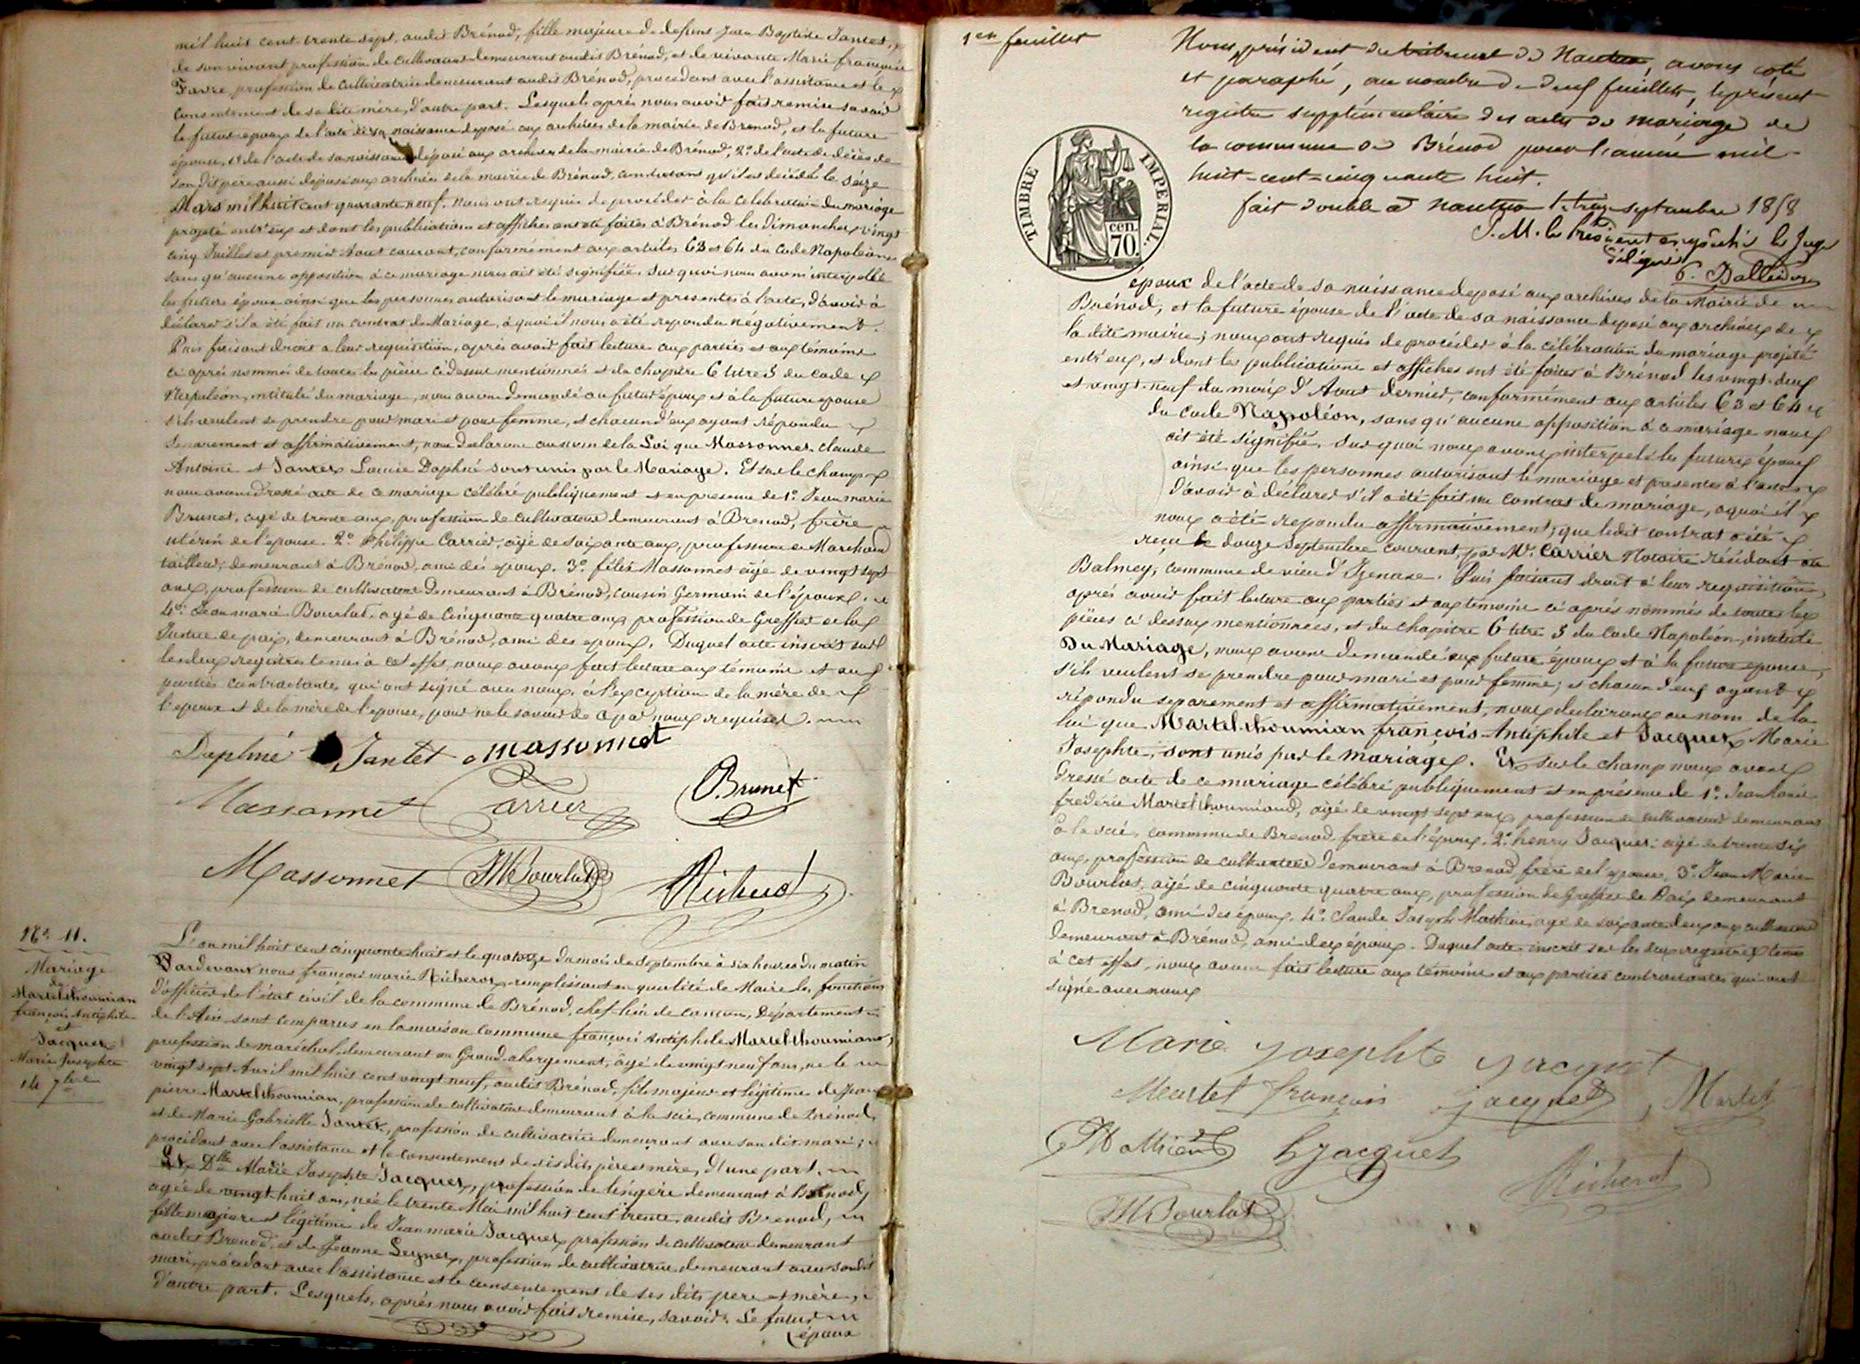 mil huit cent trente sept, audit Brénod, fille majeure de defunt Jean Baptiste Jantet,
de son vivant profession de cultivateur demeurant audit Brénod, et de vivante Marie françoise
Favre profession de cultivatrice demeurant audit Brénod, procedant avec l'assistance et le
consentement de sa dite mère, d'autre part. Lesquels après nous avoir fait remise savoir
le futur epoux de l'acte de sa naissance deposé aux archives de la mairie de Brénod, et la future
épouse, 1° de l'acte de sa naissance deposé aux archives de la mairie de Brénod, 2° de l'acte de décès de
son dit père aussi deposé aux archives de la mairie de Brénod, constatant qu'il est décédé le seize
Mars mil huit cent quarante neuf. nous ont requis de procéder à la célébration du mariage
projeté entr'eux et dont les publications et affiches ont été faites à Brénod les dimanches vingt
cinq Juillet et premier Aout courant, conformément aux articles 63 et 64 du Code Napoléon
sans qu'aucune opposition à ce mariage nous ait été signifiée. Sur quoi nous avons interpellé
les futurs époux ainsi que les personnes autorisant le mariage et présentes à l'acte, d'avoir à
déclarer s'il a été fait un contrat de Mariage, à quoi il nous a été repondu négativement.
Puis faisant droit a leur requisition, après avoir fait lecture aux parties et aux témoins
ci après nommés de toutes les pièces ci dessus mentionnées et du chapitre 6 titre 5 du Code
Napoléon, intitulé du mariage, nous avons demandé au futur époux et à la future epouse
s'ils veulent se prendre pour mari et pour femme, et chacun d'eux ayant répondu
séparement et affirmativement, nous declarons au nom de la Loi que Massonnet Claude
Antoine et Jantet Louise Daphné sont unis par le Mariage. Et sur le champ
nous avons dressé acte de ce mariage célébré publiquement et en presence de 1° Jean marie
Brunet, agé de trente ans, profession de cultivateur demeurant à Brenod, frère
utérin de l'epouse. 2° Philippe Carrier, âgé de soixante ans, profession de Marchand
tailleur, demeurant à Brénod, ami des epoux. 3° félix Massonnet âgé de vingt sept
ans, profession de cultivateur demeurant à Brénod, cousin Germain de l'époux.
4° Jean marie Bourlot, agé de cinquante quatre ans profession de Greffier de la
Justice de paix, demeurant à Brénod, ami des epoux. Duquel acte inscrit sur
les deux registres tenus à cet effet, nous avons fait lecture aux témoins et aux
parties contractantes qui ont signé avec nous, à l'exception de la mère de
l'epoux et de la mère de l'epouse, pour ne le savoir de ce par nous requises.
Daphné Jantet Massonnet
Massonnet Carrier Brunet
Massonnet JMBourlot Richerot
N° 11.
Mariage
de
Martel thoumian
françois Antiphile
et
Jacquet
Marie Josephte
14 7bre
L'an mil huit cent cinquante huit et le quatorze du mois de Septembre à six heures du matin
Pardevant nous françois marie Richerot, remplissant en qualité de Maire les fonctions
d'officier de l'état civil de la commune de Brénod, chef-lieu de canton, Département
de l'Ain sont comparus en la maison commune françois Antiphile Martel thoumian,
profession de maréchal, demeurant au Grand abergement, âgé de vingt neuf ans, ne le
vingt sept Avril mil huit cent vingt neuf, audit Brénod, fils majeur et légitime de Jean
pierre Martel thoumian, profession de cultivateur demeurant à la scie, commune de Brénod,
et de Marie Gabrielle Jantet, profession de cultivatrice demeurant avec son dit mari;
procédant avec l'assistance et le consentement de ses dits père et mère, d'une part.
Et Dlle Marie Josephte Jacquet, profession de lingère demeurant à Brénod,
agée de vingt huit ans, née le trente Mai mil huit cent trente, audit Brenod,
fille majeure et légitime de Jean marie Jacquet profession de cultivateur demeurant
audit Brenod, et de Jeanne Leynet, profession de cultivatrice demeurant avec son dit
mari, procédant avec l'assistance et le consentement de ses dits pere et mère,
d'autre part. Lesquels, après nous avoir fait remise, savoir: Le futur
époux
1er feuillet
Nous, président du tribunal de Nantua, avons coté
et paraphé, au nombre de deux feuillets, le présent
registre supplémentaire des actes de mariage de
la commune de Brénod pour l'année mil
huit-cent-cinquante huit.
fait double à Nantua le treize septembre 1858
P. M. le Président empêché le Juge
délégué
TIMBRE IMPERIAL.
70 cen.
époux de l'acte de sa naissance deposé aux archives de la Mairie de
Brénod, et la future épouse de l'acte de sa naissance déposé aux archives de
la dite mairie; nous ont requis de procéder à la célébration du mariage projeté
entr'eux, et dont les publications et affiches ont été faites à Brénod les vingt-deux
et vingt-neuf du mois d'Aout dernier, conformément aux articles 63 et 64
du code Napoléon, sans qu'aucune opposition à ce mariage nous
ait été signifiée. Sur quoi nous avons interpelé les futurs époux
ainsi que les personnes autorisant le mariage et presentes à l'acte
d'avoir à déclarer s'il a été fait un contrat de mariage, à quoi il
nous a été repondu affirmativement, que ledit contrat a été
recu le douze Septembre courant, par Me. Carrier Notaire résidant au
Balmey, commune de vieu d'Izenave. Puis faisant droit à leur requisition,
après avoir fait lecture aux parties et aux témoins ci après nommés de toutes les
pièces ci dessus mentionnées, et du chapitre 6 titre 5 du Code Napoléon, intitulé
Du Mariage, nous avons demandé aux futurs époux et à la future epouse,
s'ils veulent se prendre pour mari et pour femme; et chacun d'eux ayant
répondu separement et affirmativement, nous declarons au nom de la
loi que Martel-thoumian françois-Antiphile et Jacquet Marie
Josephte, sont unis par le mariage. Et sur le champ nous avons
dressé acte de ce mariage célébré publiquement et en présence de 1° Jean Marie
frederic Martel thoumiand, agé de vingt sept ans profession de cultivateur demeurant
à la scie, commune de Brenod, frère de l'époux. 2° henry Jacquet âgé de trente six
ans, profession de cultivateur demeurant à Brenod frère de l'epouse. 3° Jean Marie
Bourlot, agé de cinquante quatre ans, profession de Greffier de Paix demeurant
à Brenod, ami des époux. 4° Claude Joseph Mathieu, agé de soixante deux ans cultivateur
demeurant à Brénod, ami des époux. Duquel acte inscrit sur les deux registres tenus
à cet effet, nous avons fait lecture aux témoins et aux parties contractantes qui ont
signé avec nous
Marie Josephte Jacquet
Martel françois Jacquet Martel
Mathieu h Jacquet Richerot
JMBourlot